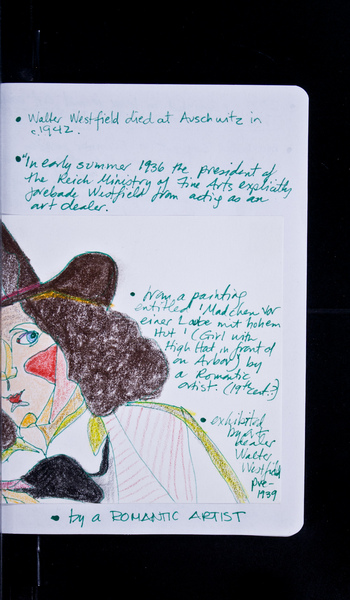 • Walter Westfield died at Auschwitz in
c.1942.
• "In early summer 1936 the president of
the Reich Ministry of Fine Arts explicitly
forebade Westfield from acting as an
art dealer.
• from a painting
entitled 'Madchen vor
einer Laube mit hohem
Hut' (Girl with
High Hat in front of
an Arbor) by
a Romantic
artist. (19th cent.?)
• exhibited
by art
dealer
Walter
Westfield
pre-
1939
• by a ROMANTIC ARTIST